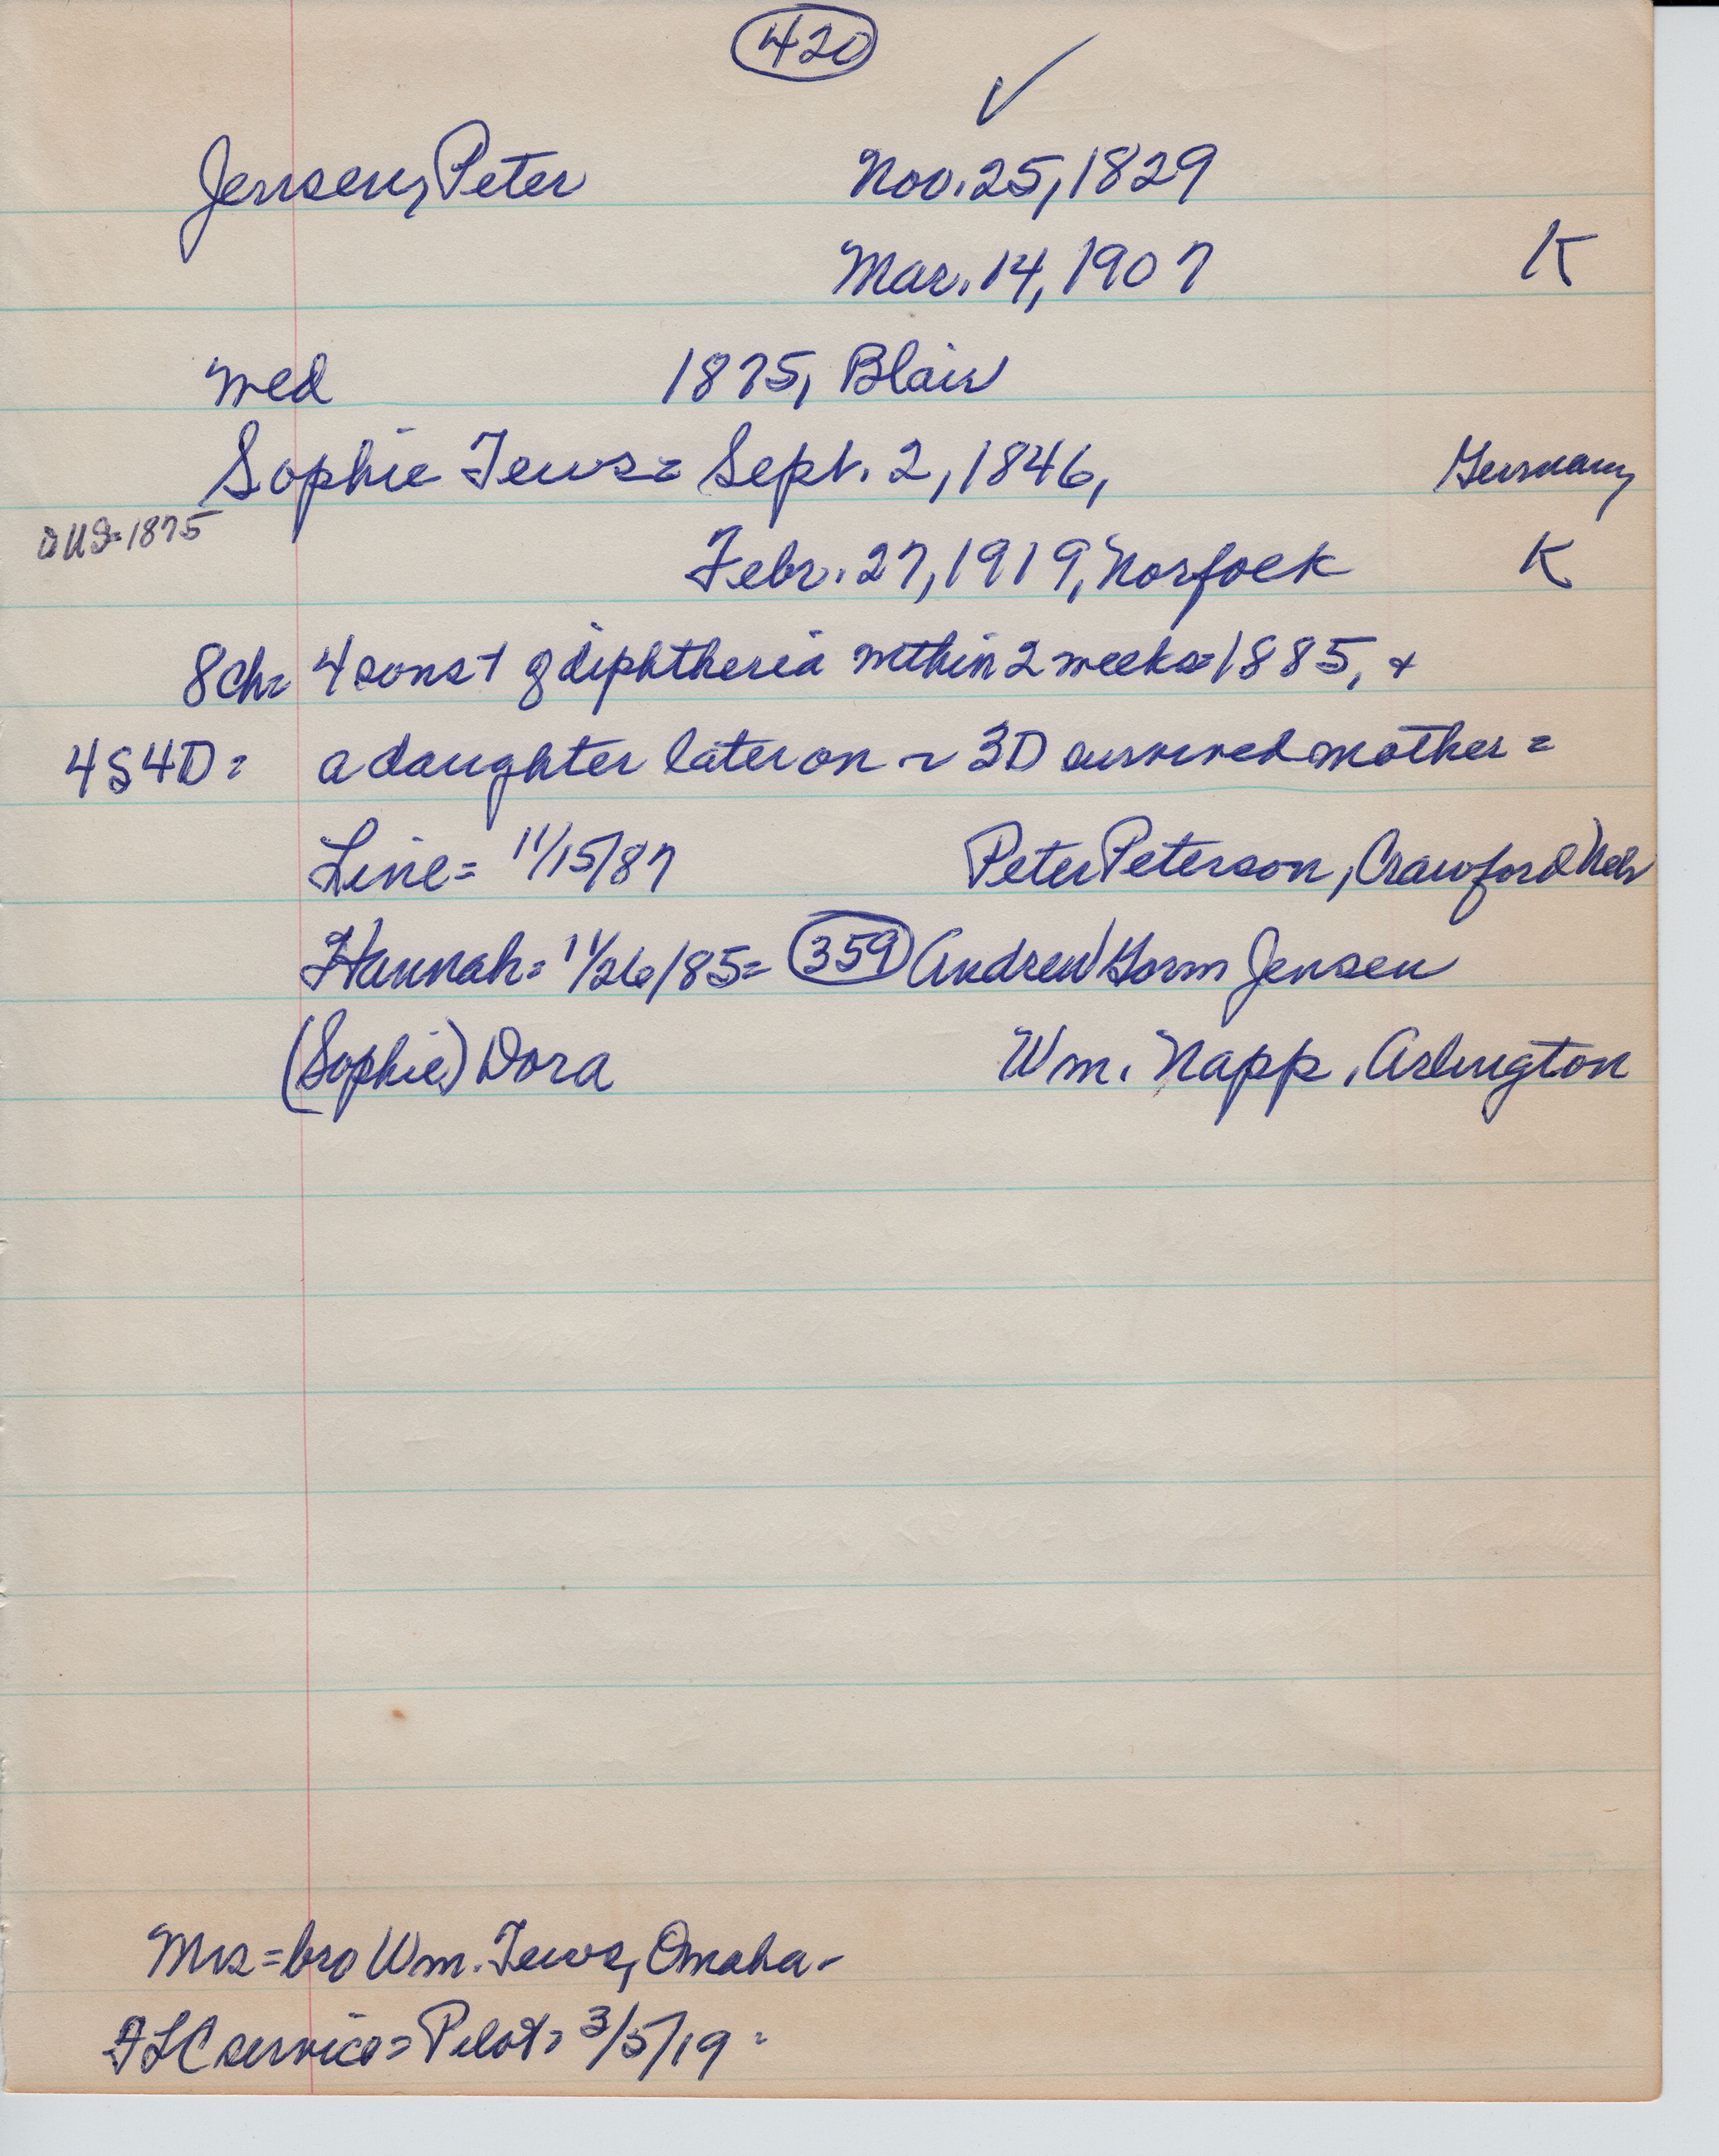 420
✓
Jensen, Peter Nov. 25, 1829
Mar. 14, 1907 K
Med 1875, Blair
Sophie Tews = Sept. 2, 1846, Germany
a US = 1875
Febr. 27, 1919, Norfolk K
8 ch = 4 sons + of diphtheria within 2 weeks = 1885, +
4 S 4 D = a daughter later on ~ 3 D survived mother =
Line = 11/15/87 Peter Peterson, Crawford Neb
Hannah = 11/26/85 = 359 Andrew Gorm Jensen
(Sophie) Dora Wm. Napp, Arlington
Mrs = bro Wm. Tews, Omaha -
FLC service = Pilot = 3/5/19 =